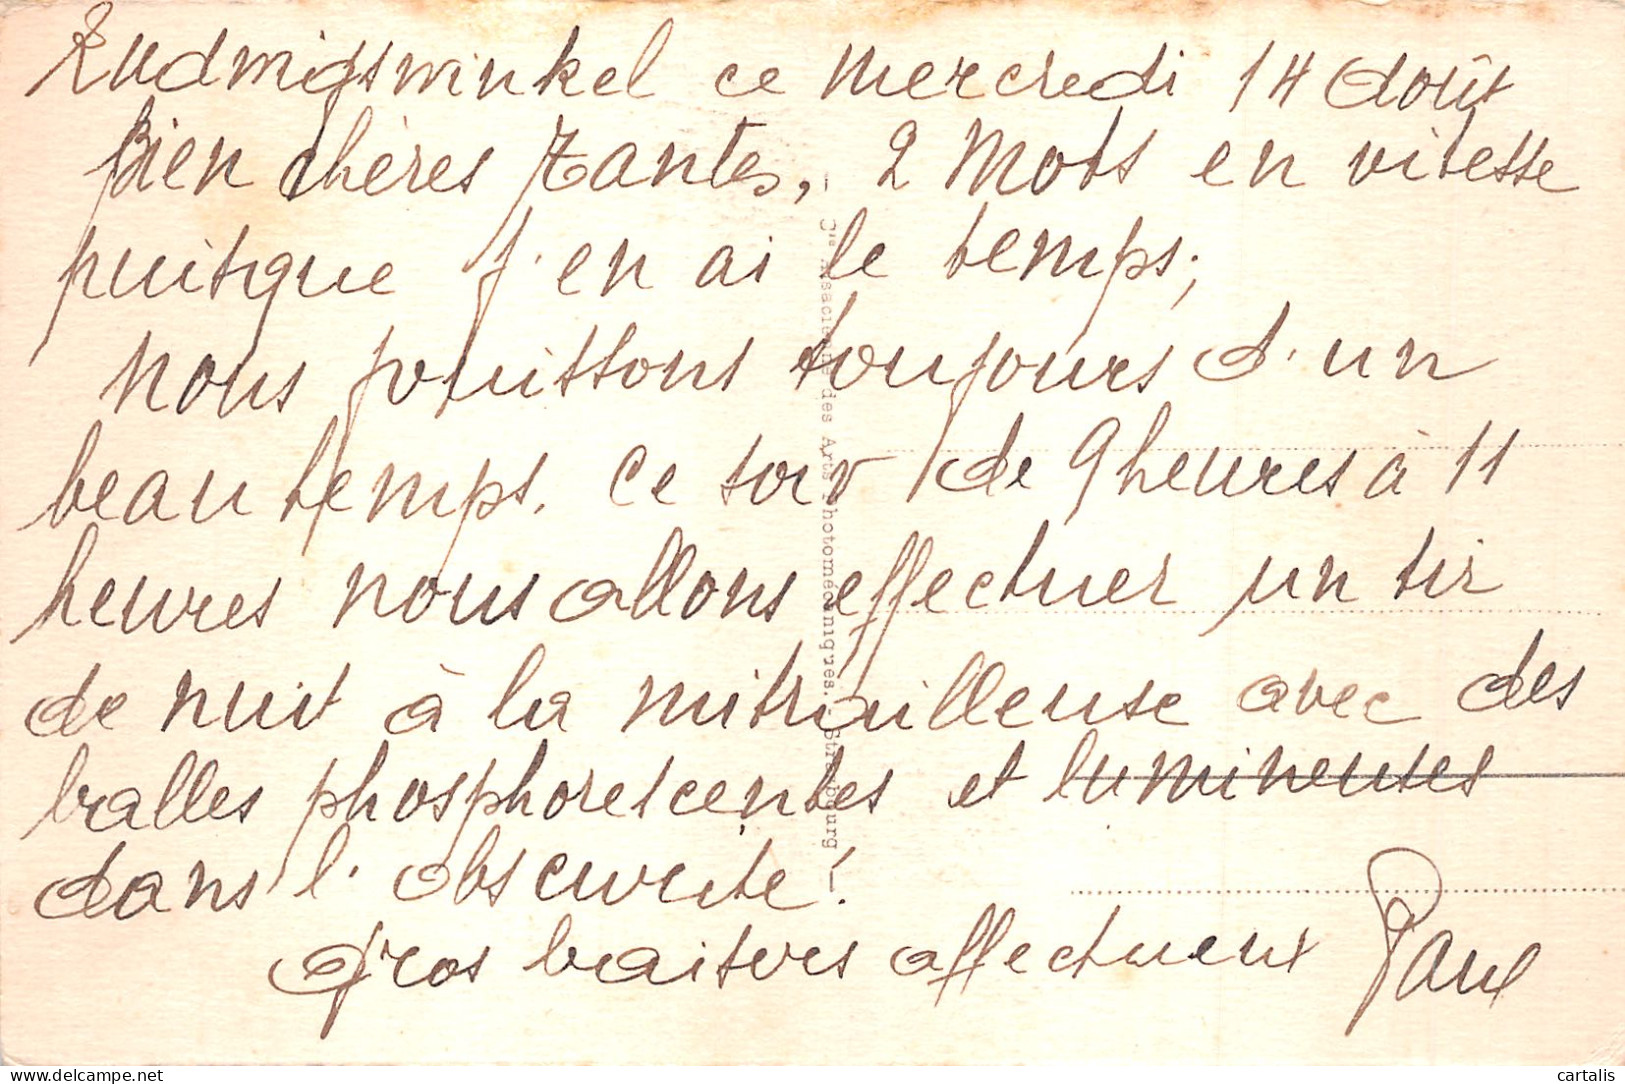 Ludwigswinkel ce Mercredi 14 août
Bien chères Tantes, 2 Mots en vitesse
puisque j'en ai le temps;
nous jouissons toujours d'un
beau temps. Ce soir de 9 heures à 11
heures nous allons effectuer un tir
de nuit à la mitrailleuse avec des
balles phosphorescentes et lumineuses
dans l'obscurité!
Gros baisers affectueux Paul
- Cie Alsacienne des Arts Photomécaniques. - Strasbourg -
cartalis